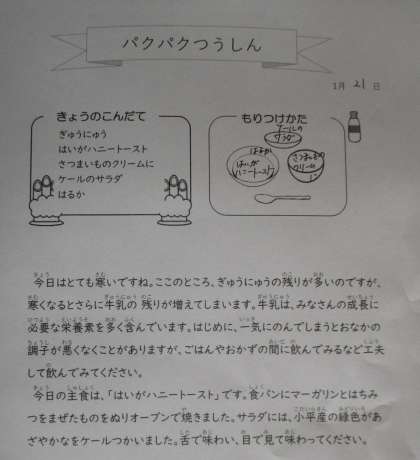 パクパクつうしん
1月 21 日
きょうのこんだて
ぎゅうにゅう
はいがハニートースト
さつまいものクリームに
ケールのサラダ
はるか
もりつけかた
ケールの
サラダ
はるか
はいが
ハニートースト
さつまいもの
クリーム
に
今日はとても寒いですね。ここのところ、ぎゅうにゅうの残りが多いのですが、
寒くなるとさらに牛乳の残りが増えてしまいます。牛乳は、みなさんの成長に
必要な栄養素を多く含んでいます。はじめに、一気にのんでしまうとおなかの
調子が悪くなくことがありますが、ごはんやおかずの間に飲んでみるなど工夫
して飲んでみてください。
今日の主食は、「はいがハニートースト」です。食パンにマーガリンとはちみ
つをまぜたものをぬりオーブンで焼きました。サラダには、小平産の緑色があ
ざやかなをケールつかいました。舌で味わい、目で見て味わってください。